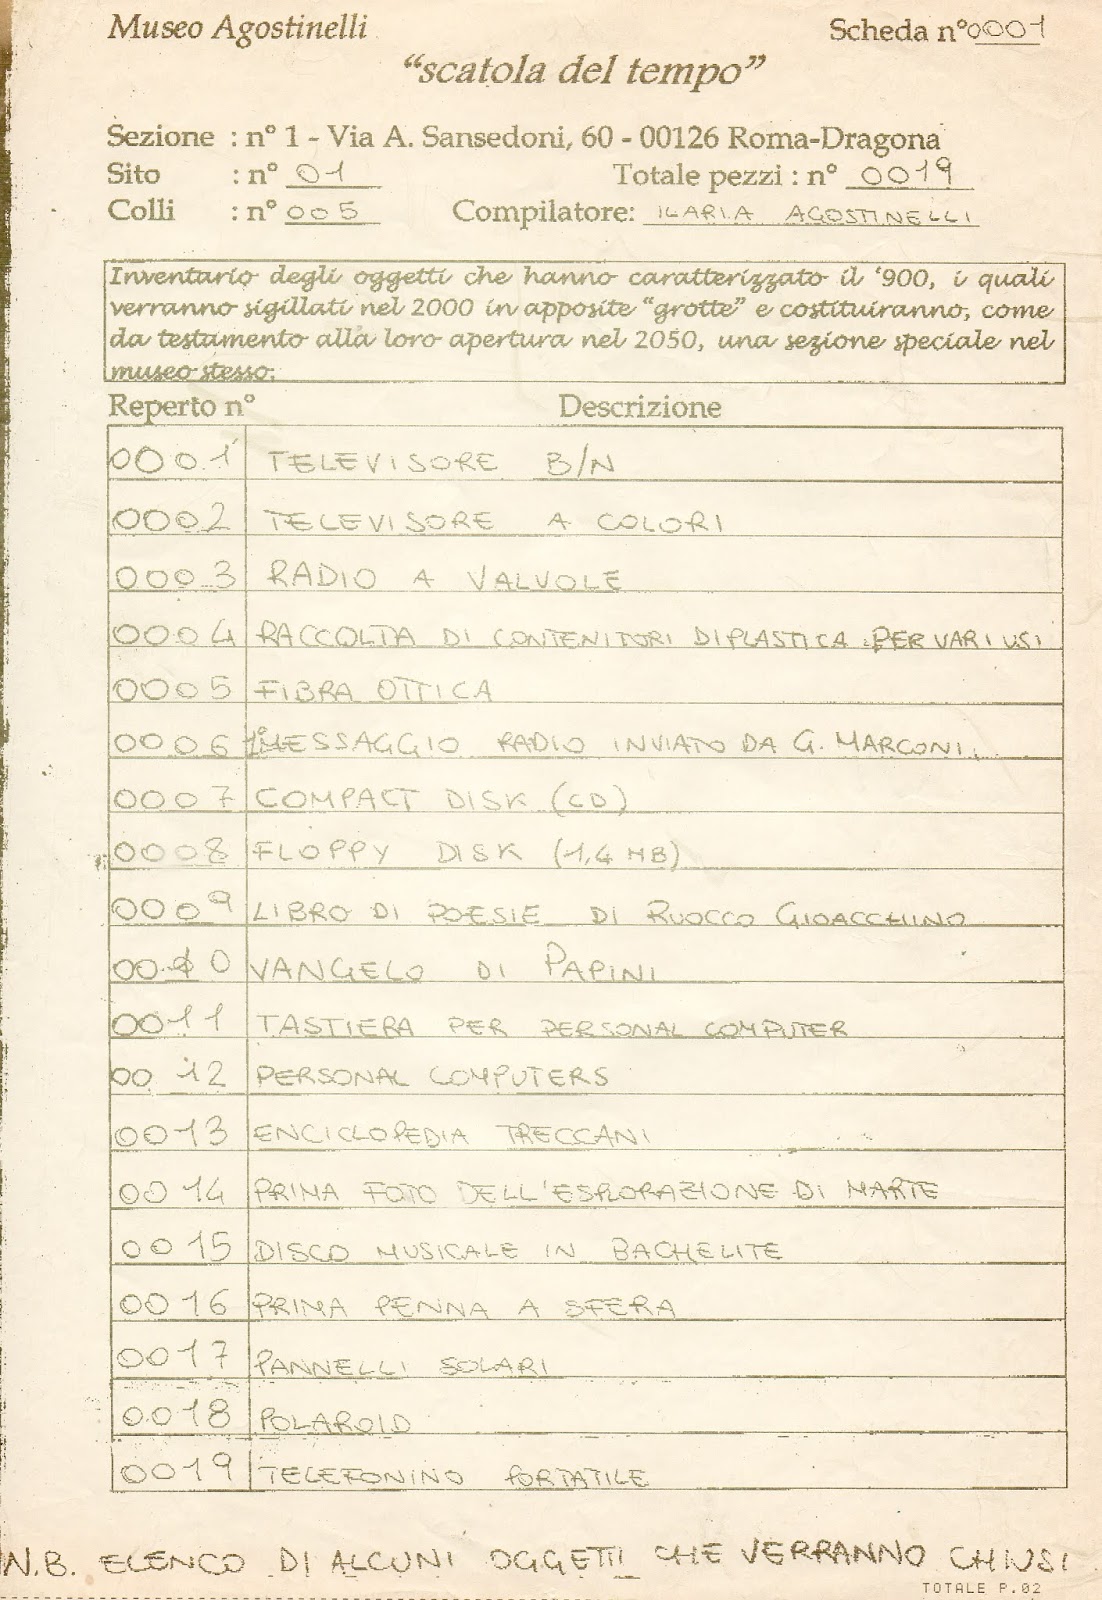 Museo Agostinelli Scheda n° 0001
“scatola del tempo”
Sezione : n° 1 - Via A. Sansedoni, 60 - 00126 Roma-Dragona
Sito : n° 01 Totale pezzi : n° 0019
Colli : n° 005 Compilatore: ILARIA AGOSTINELLI
Inventario degli oggetti che hanno caratterizzato il ‘900, i quali
verranno sigillati nel 2000 in apposite “grotte” e costituiranno, come
da testamento alla loro apertura nel 2050, una sezione speciale nel
museo stesso.
Reperto n° Descrizione
0001 TELEVISORE B/N
0002 TELEVISORE A COLORI
0003 RADIO A VALVOLE
0004 RACCOLTA DI CONTENITORI DI PLASTICA PER VARI USI
0005 FIBRA OTTICA
0006 1° MESSAGGIO RADIO INVIATO DA G. MARCONI
0007 COMPACT DISK (CD)
0008 FLOPPY DISK (1,4 MB)
0009 LIBRO DI POESIE DI RUOCCO GIOACCHINO
0010 VANGELO DI PAPINI
0011 TASTIERA PER PERSONAL COMPUTER
0012 PERSONAL COMPUTERS
0013 ENCICLOPEDIA TRECCANI
0014 PRIMA FOTO DELL'ESPLORAZIONE DI MARTE
0015 DISCO MUSICALE IN BACHELITE
0016 PRIMA PENNA A SFERA
0017 PANNELLI SOLARI
0018 POLAROID
0019 TELEFONINO PORTATILE
N.B. ELENCO DI ALCUNI OGGETTI CHE VERRANNO CHIUSI
TOTALE P.02